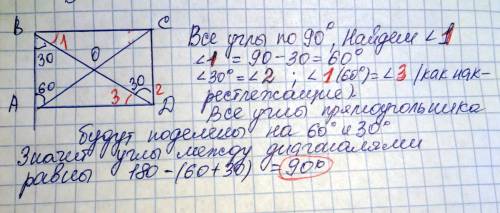 B
C
1
30
O
60
30
3
2
A
D
Все углы по 90°, Найдем ∠1
∠1 = 90 - 30 = 60°
∠30° = ∠2 ; ∠1 (60°) = ∠3 (как нак-
рестлежащие).
Все углы прямоугольника
будут поделены на 60° и 30°
Значит углы между диагоналями
равны 180 - (60 + 30) = 90°